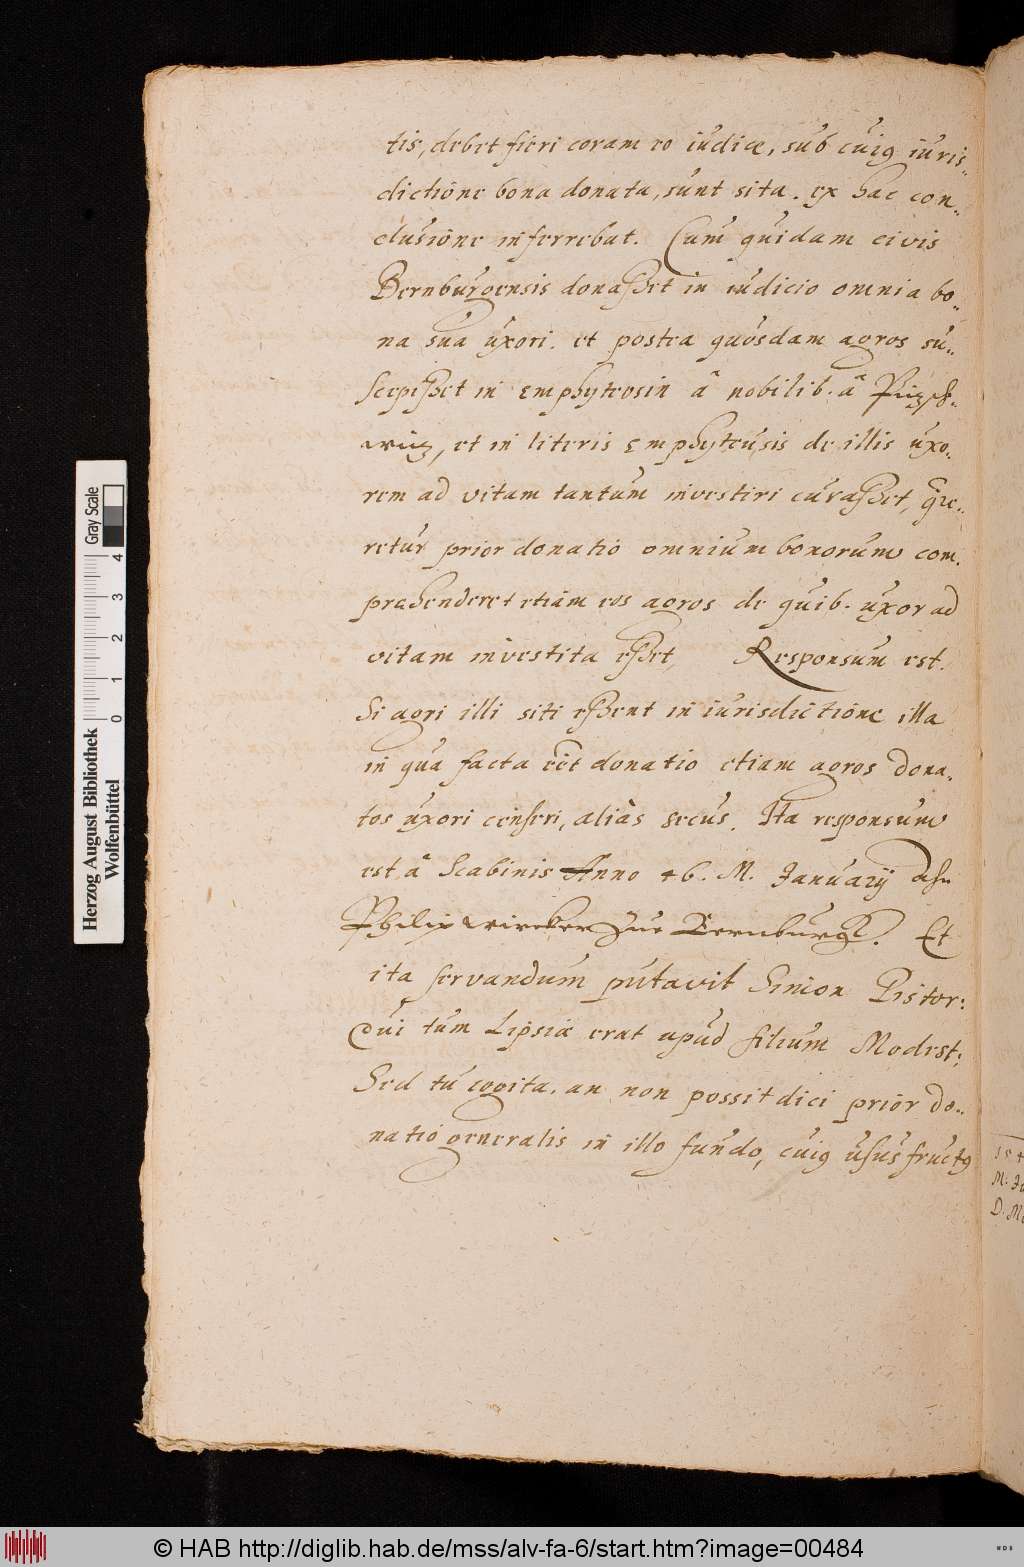 tis, debet fieri coram eo iudice, sub cuiꝯ iuris-
dictione bona donata, sunt sita. ex hac con-
clusione inferrebat. Cum quidam civis
Bernburgensis donasset in iudicio omnia bo-
na sua uxori. et postea quosdam agros su-
scepisset in emphyteosin â nobilib. â
et in literis emphyteusis de illis uxo-
rem ad vitam tantum investiri curasset,
retur prior donatio omnium bonorum com-
prahenderet etiam eos agros de quib. uxor ad
vitam investita esset, Responsum est.
Si agri illi siti essent in iurisdictione illa
in qua facta eet donatio etiam agros dona-
tos uxori censeri, aliàs secus. Ita responsum
est â Scabinis Anno 46. M. Januarij ahn
Philip wircker zue Bernburgk. Et
ita servandum putavit Simon Pistor:
Qui tum Lipsiæ erat apud filium Modest:
Sed tu cogita. an non possit dici prior do-
natio generalis in illo fundo, cuiꝯ usus fructꝯ
154
M. Ja
D. Mo
Gray Scale
4 3 2 1 0
Herzog August Bibliothek
Wolfenbüttel
© HAB http://diglib.hab.de/mss/alv-fa-6/start.htm?image=00484